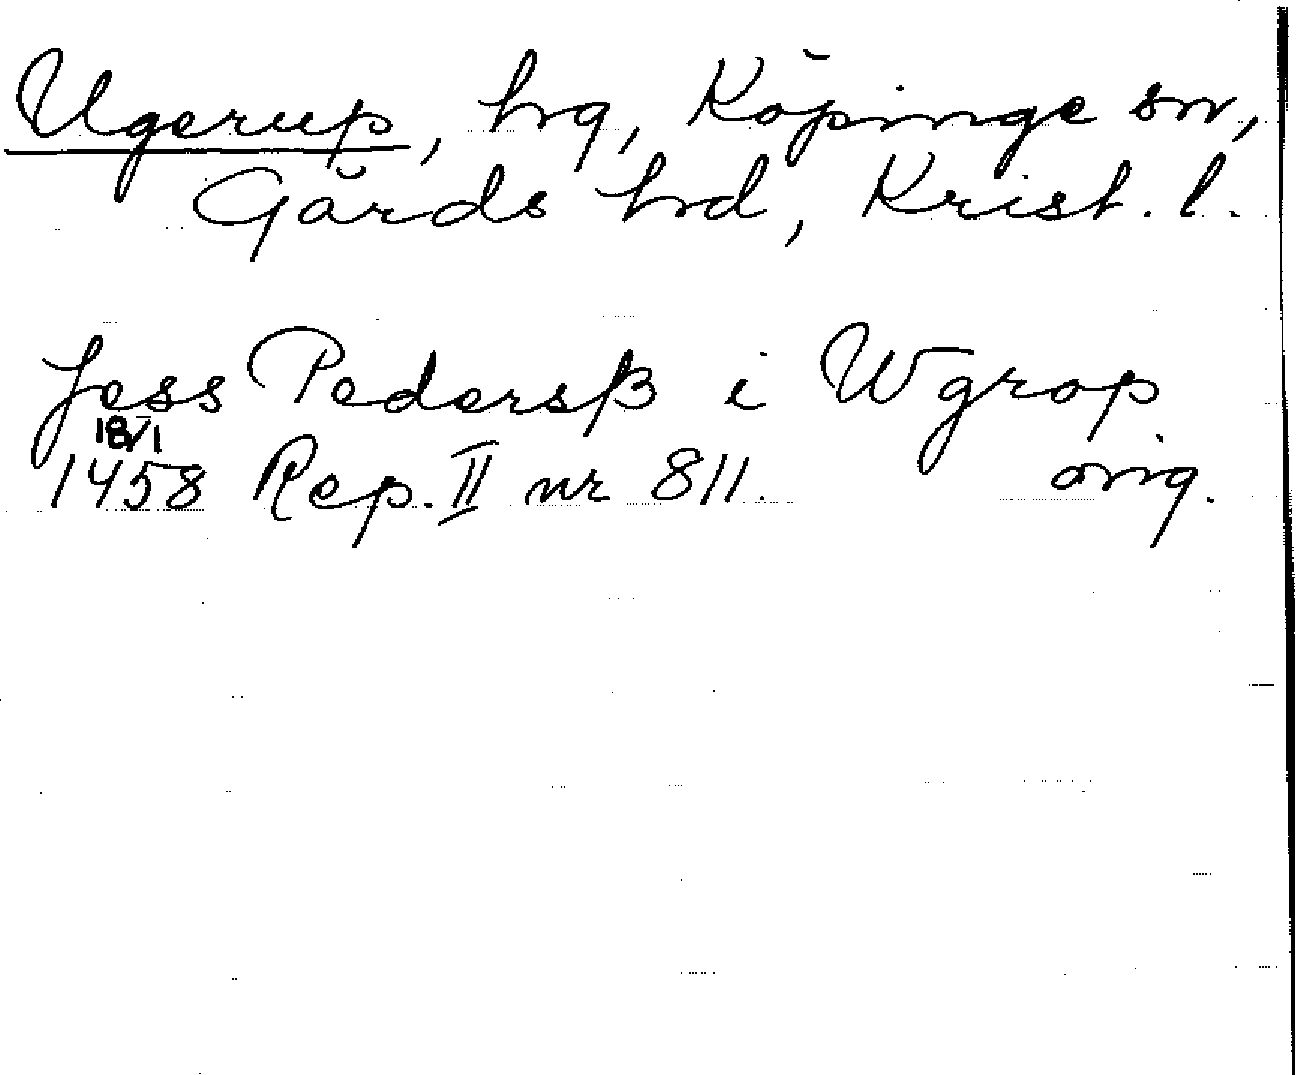 Ugerup, hrg, Köpinge sn,
Gärds hrd, Krist. l.
Jess Pedersß i Wgrop
18/VI
1458 Rep. II nr 811. orig.